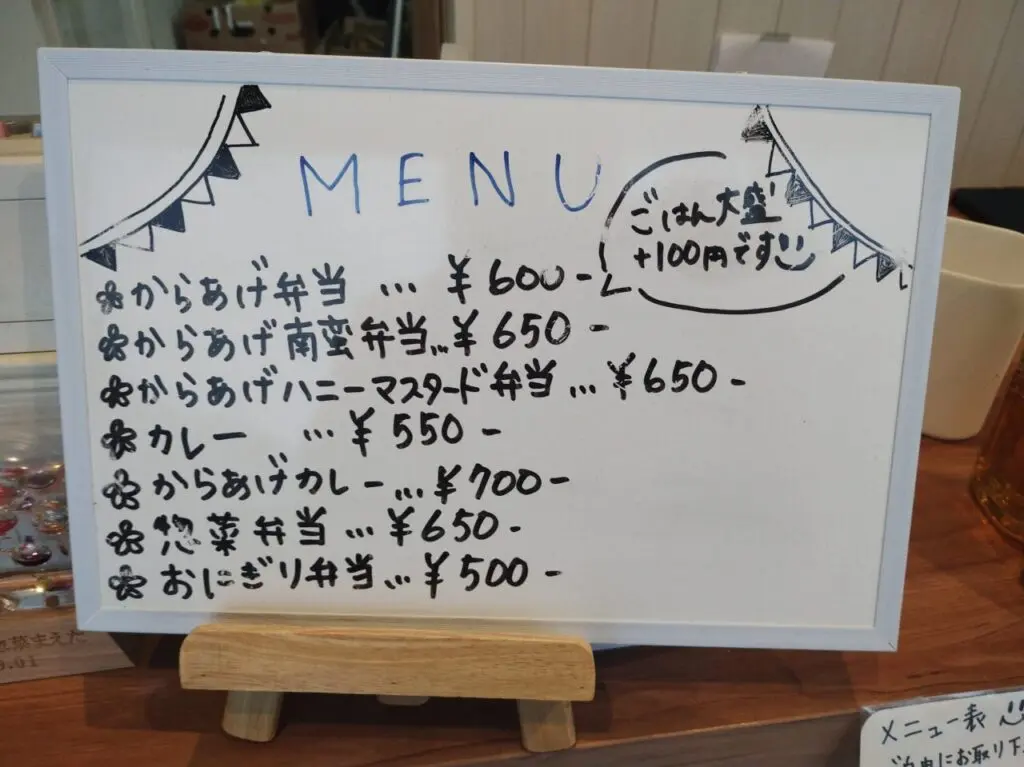 MENU
ごはん大盛
+100円です
からあげ弁当 ... ¥600-
からあげ南蛮弁当...¥650-
からあげハニーマスタード弁当 ...¥650-
カレー ...¥550-
からあげカレー...¥700-
惣菜弁当 ...¥650-
おにぎり弁当...¥500-
メニュー表
にお取り下